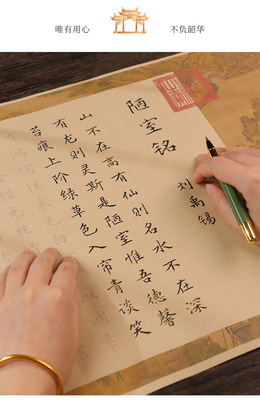 唯有用心
不负韶华
陋室铭
刘禹锡
山不在高有仙则名水不在深
有龙则灵斯是陋室惟吾德馨
苔痕上阶绿草色入帘青谈笑